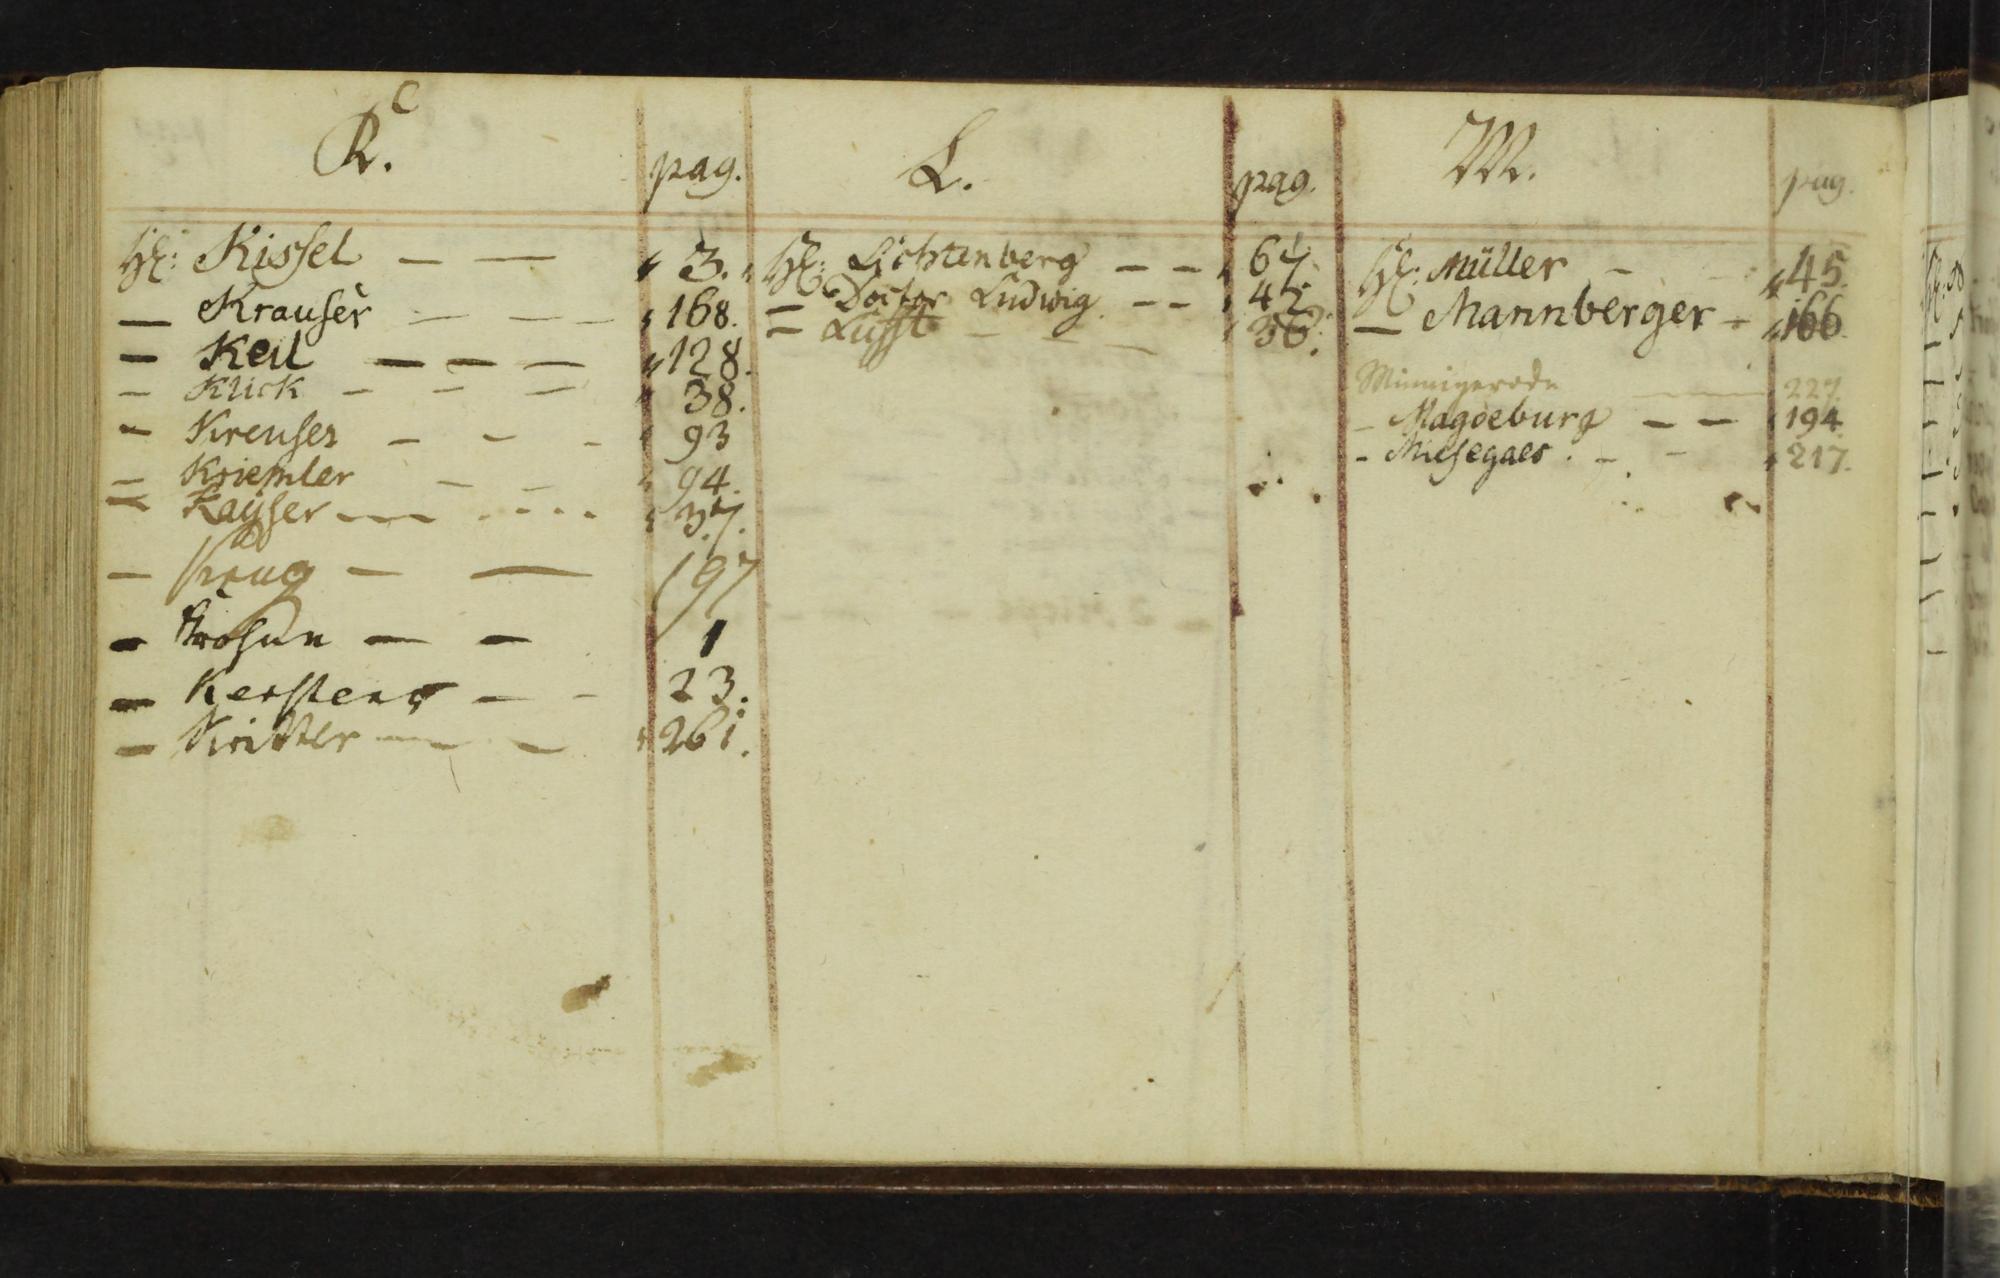 K.
pag.
H: Kissel — — " 3.
— Krauser — — — " 168.
— Keil — — — " 128.
— Klick — — — " 38.
— Kreuser — — — " 93
— Kriemler — — " 94.
— Kayser — — " 37.
— Krug — — 197
— — — 1
— Kersten — — 23.
— Kritter — — " 261.
L.
pag.
H: Lichtenberg — — " 64.
— Doctor Ludwig — — " 42.
— Lufft — — — " 36.
M.
pag.
H: Müller — " 45.
— Mannberger — " 166
Minnigerode — 227.
— Magdeburg — — " 194
— Miesegaes — — " 217.